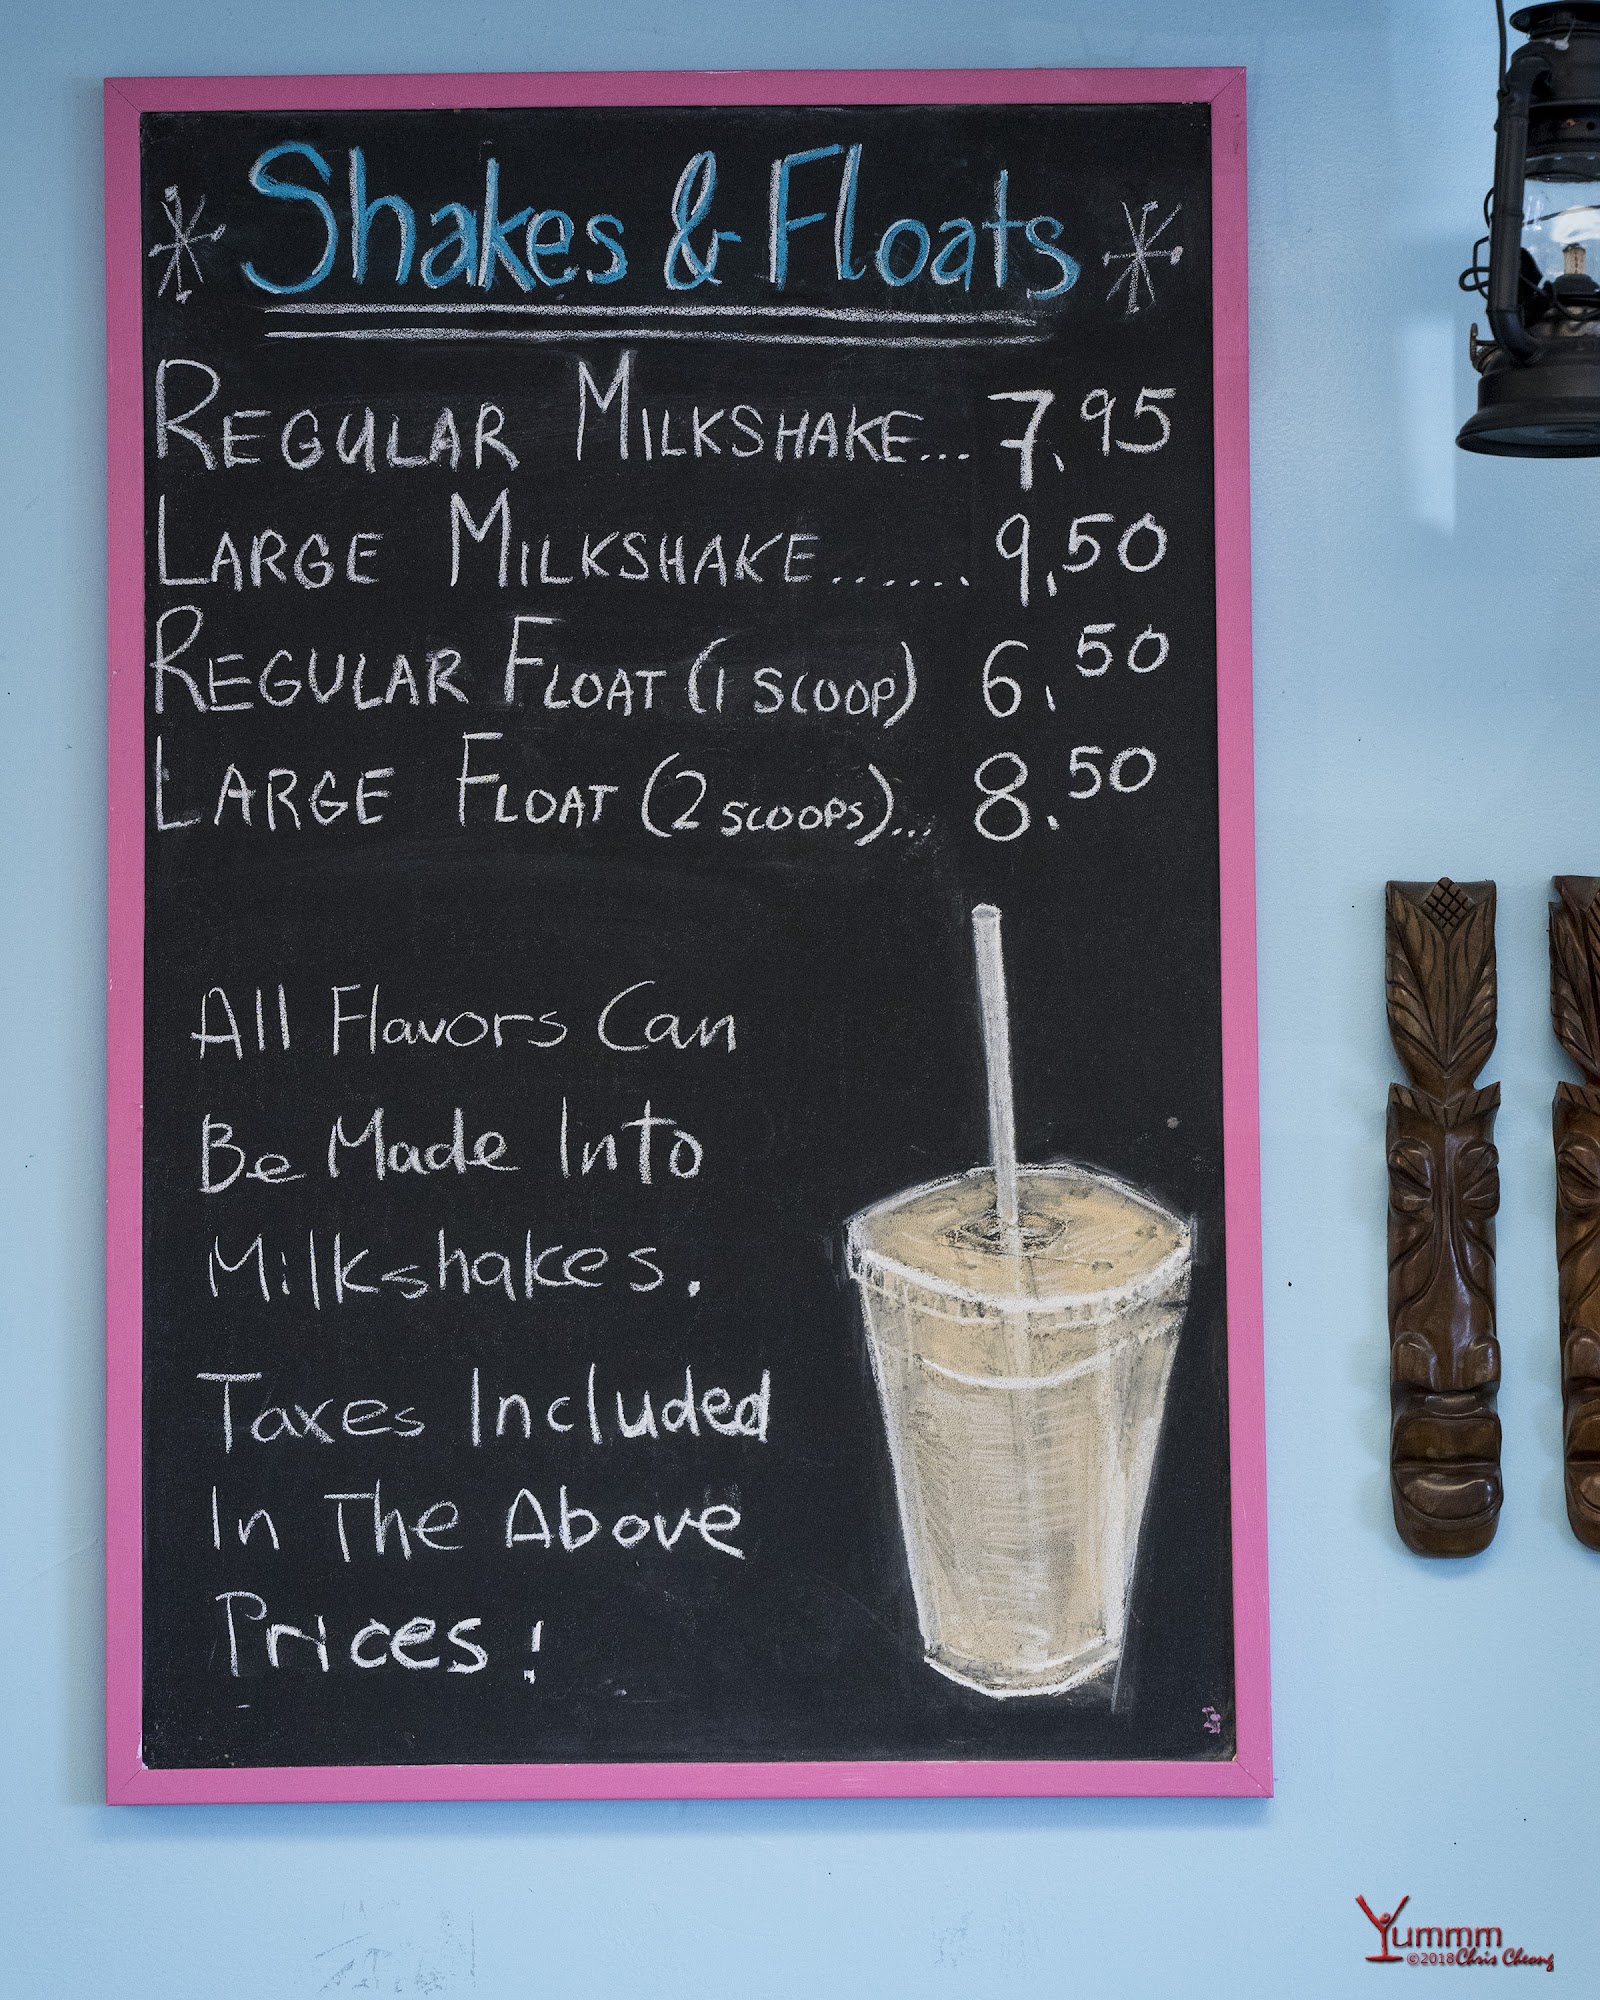 Shakes & Floats
REGULAR MILKSHAKE... 7.95
LARGE MILKSHAKE....... 9.50
REGULAR FLOAT (1 SCOOP) 6.50
LARGE FLOAT (2 SCOOPS)... 8.50
All Flavors Can
Be Made Into
Milkshakes.
Taxes Included
In The Above
Prices!
Yummm
©2018 Chris Cheong